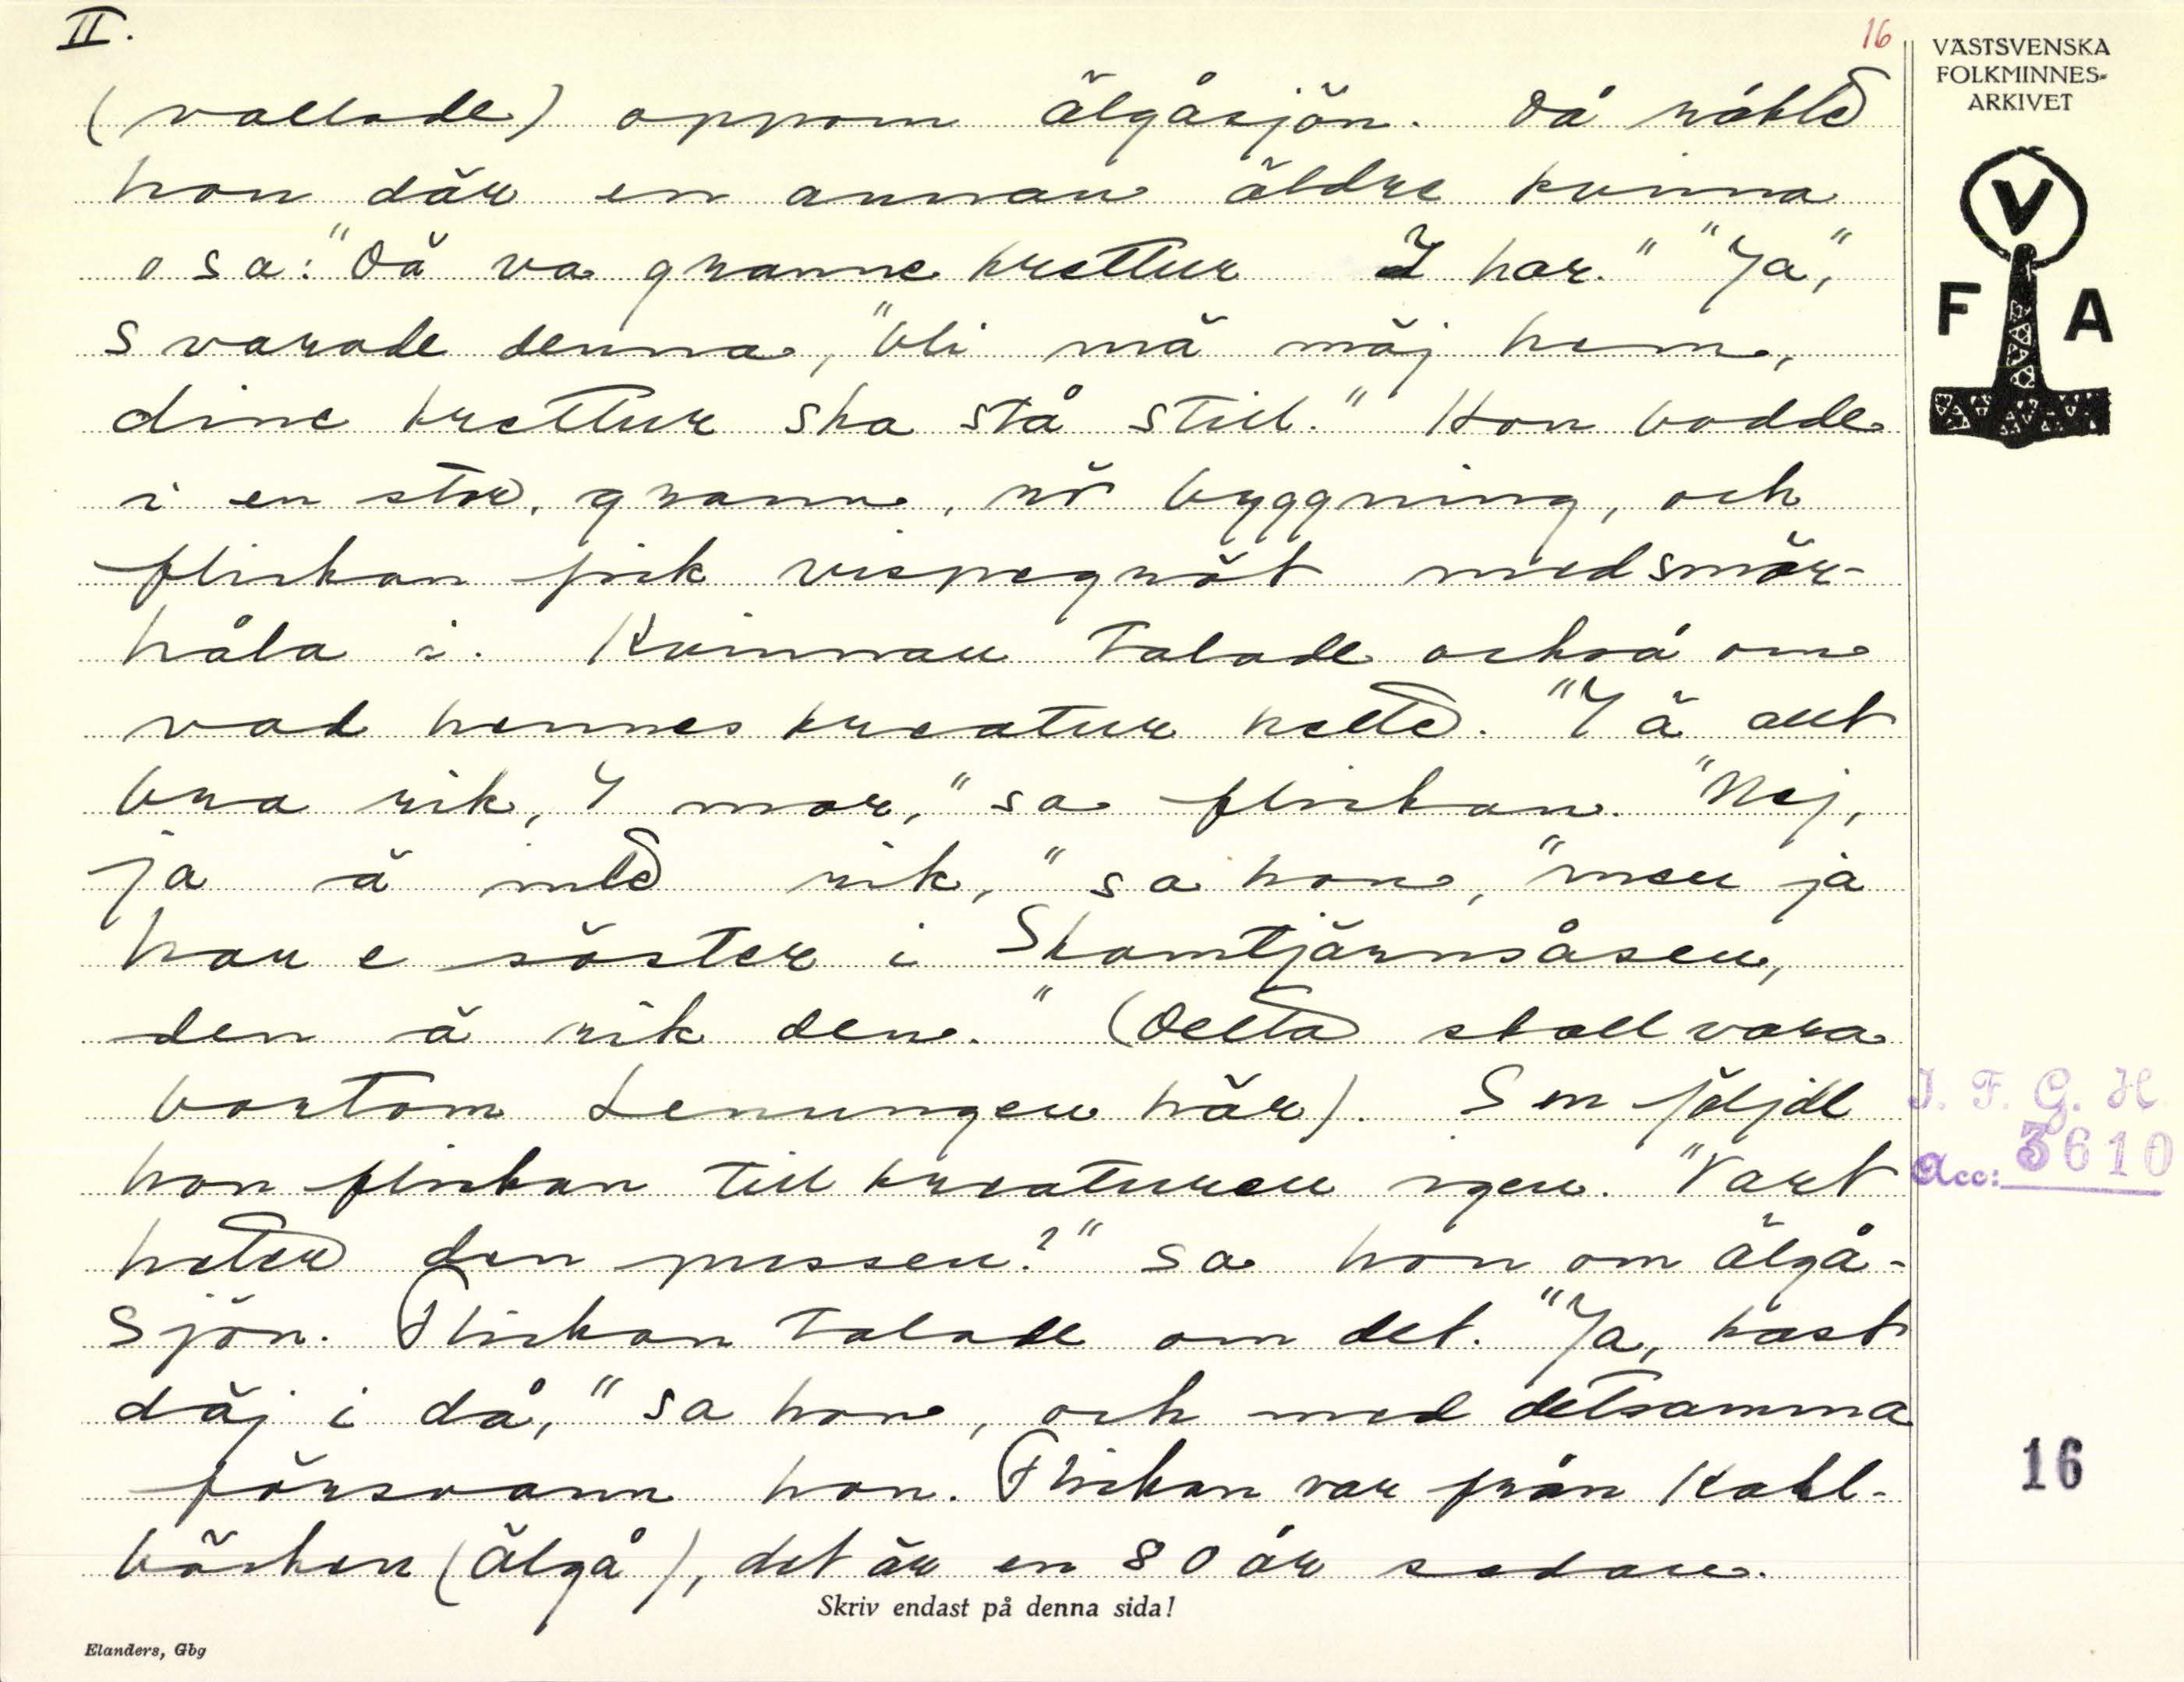 II.
16
VÄSTSVENSKA
FOLKMINNES-
ARKIVET
V
F A
(vallade) oppom Älgåsjön. Då råkte
hon där en annan äldre kvinna
o sa: "Dä va granne krettur I har." "Ja",
svarade denna, "bli mä mäj hem,
dine krettur ska stå still." Hon bodde
i en stor, grann, rö byggning, och
flickan fick vispegröt med smör-
håla i. Kvinnan talade också om
vad hennes kreatur hette. "I ä allt
bra rik, I mor," sa flickan. "Nej,
ja ä inte rik," sa hon, "men ja
har e söster i Skomtjärnsåsen,
den ä rik den." (Detta skall vara
bortom Lenungen här). Sen följde
hon flickan till kreaturen igen. "Vart
heter den pussen?" sa hon om Älgå-
sjön. Flickan talade om det. "Ja, kast
däj i då," sa hon, och med detsamma
försvann hon. Flickan var från Kohl-
bäcken (Älgå), det är en 80 år sedan.
I. F. G. H.
Acc: 3610
16
Skriv endast på denna sida!
Elanders, Gbg